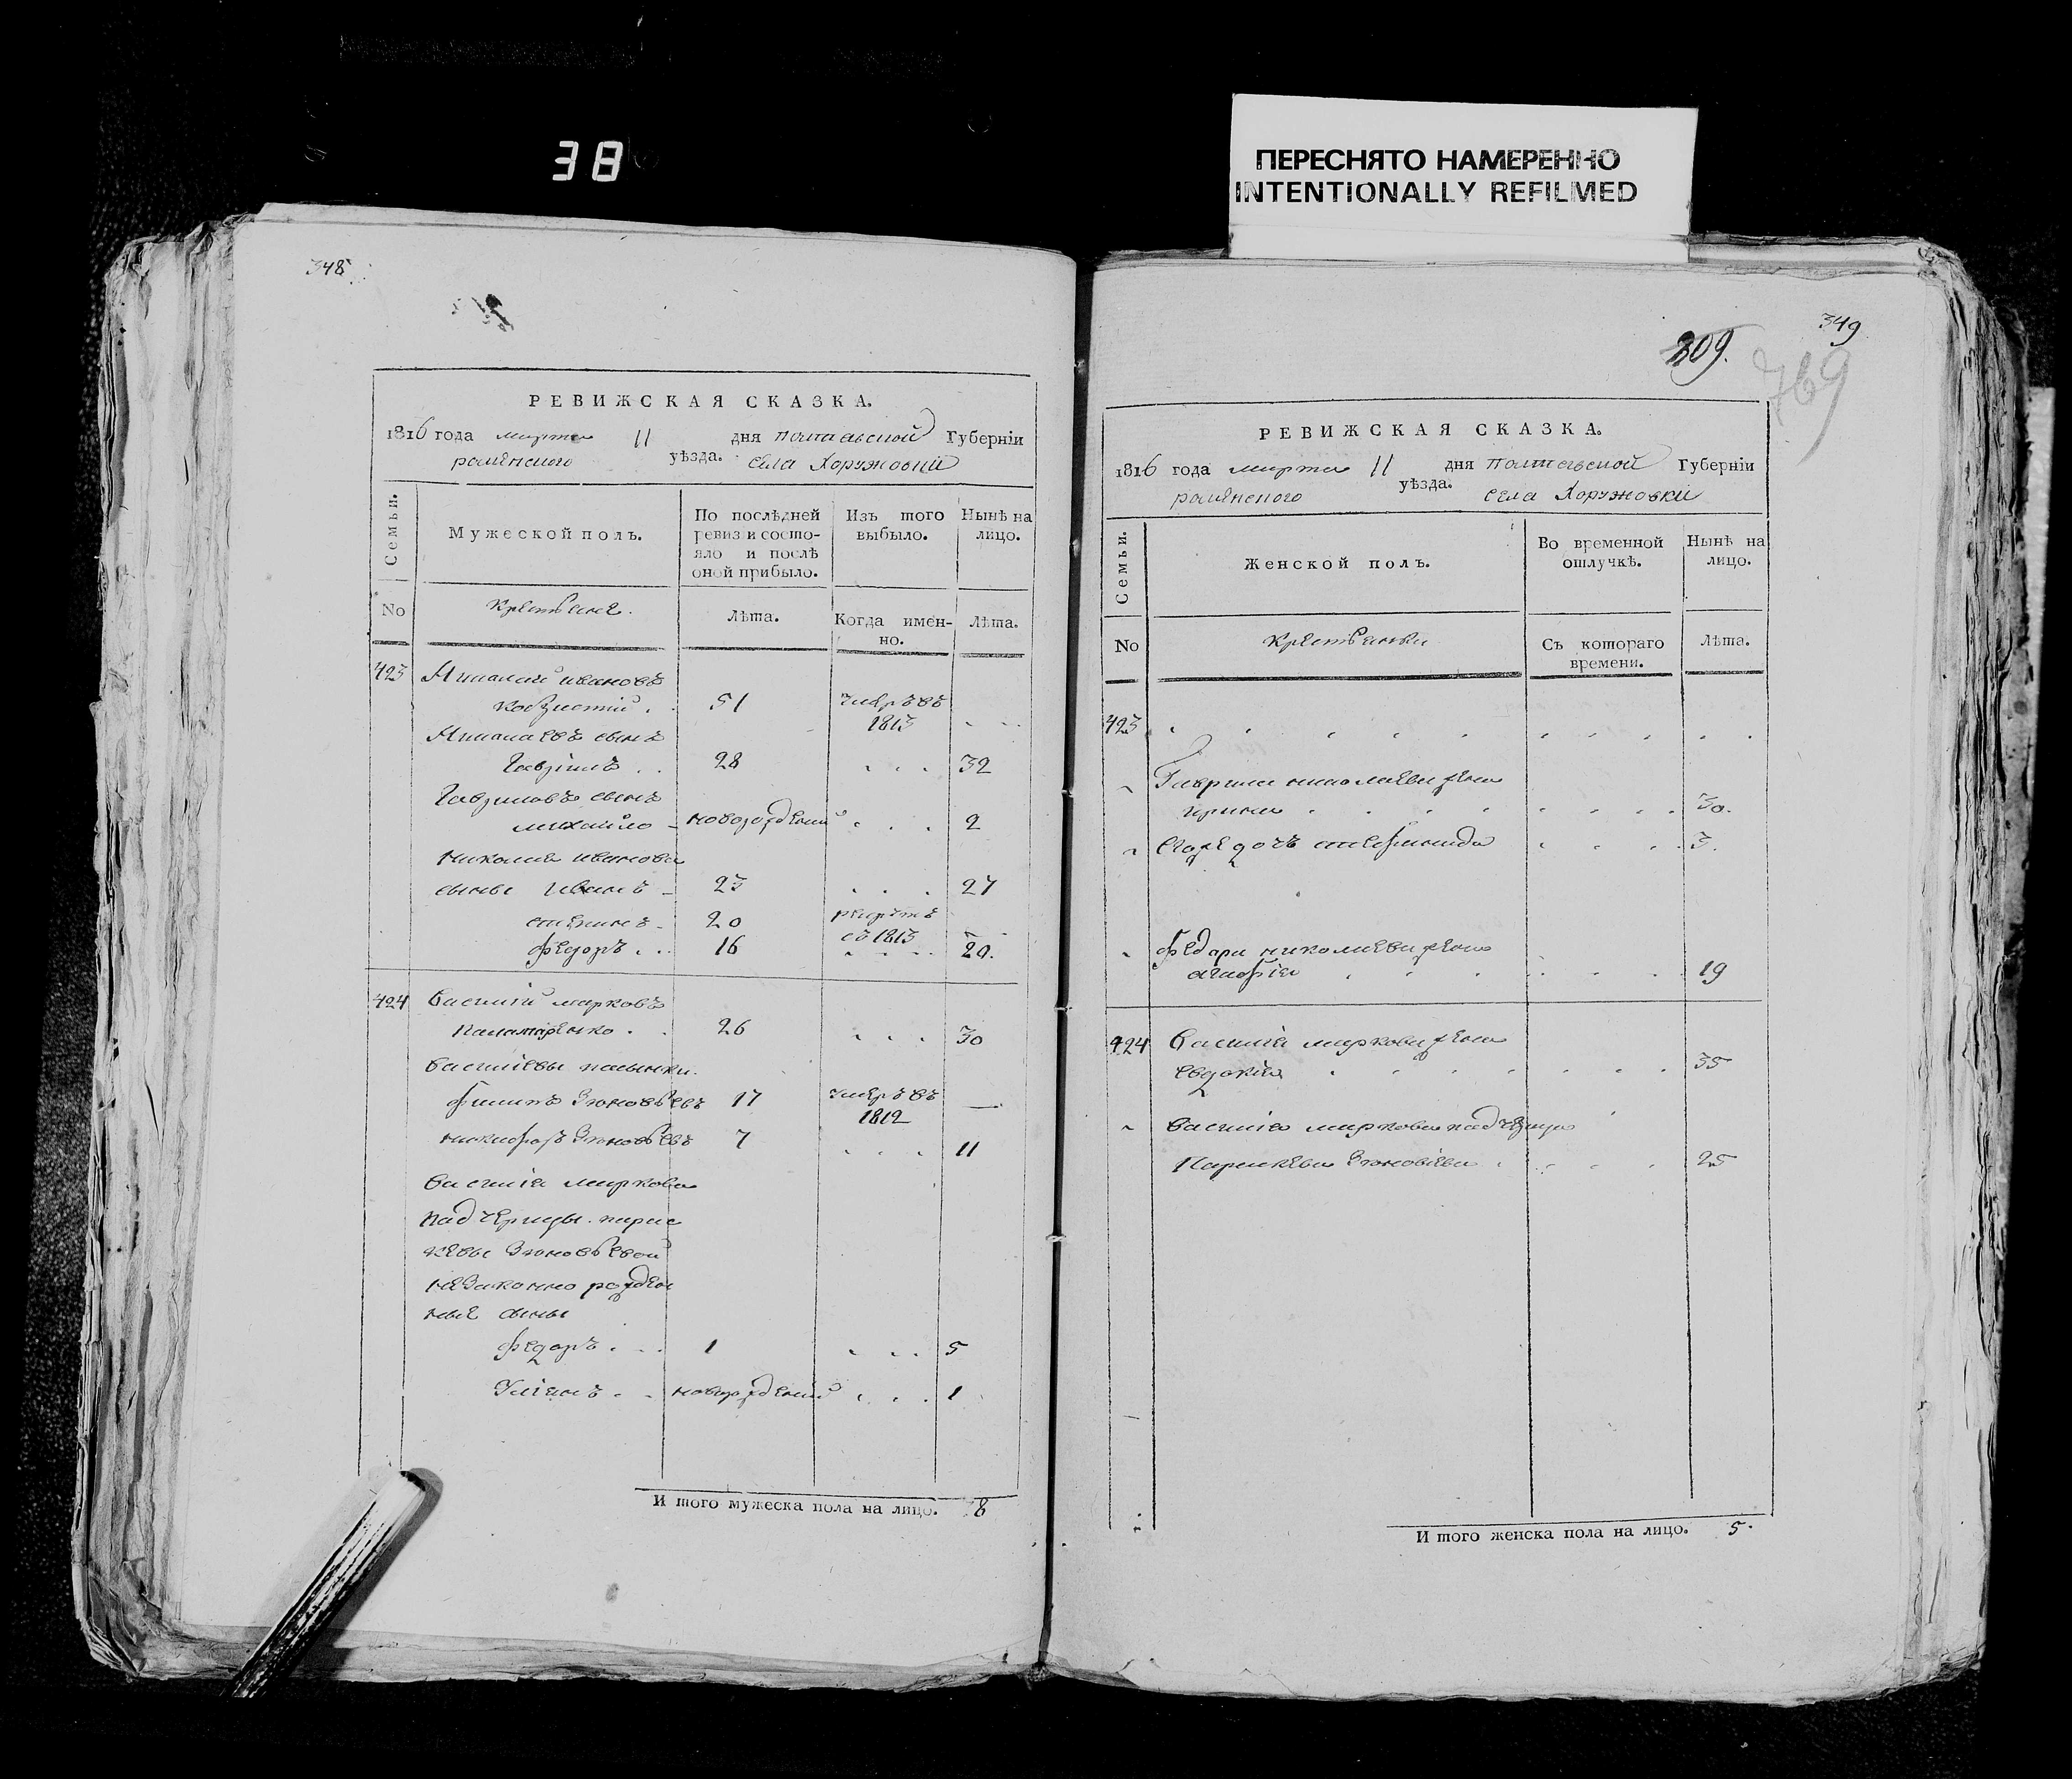 38
ПЕРЕСНЯТО НАМЕРЕННО
INTENTIONALLY REFILMED
348
РЕВИЖСКАЯ СКАЗКА.
1816 года марта 11 дня Полтавской Губернїи
роменского уѣзда. села Хоружовки
Семьи.
Мужеской полъ.
По послѣдней
ревизи состо-
яло и послѣ
оной прибыло.
Изъ того
выбыло.
Нынѣ на
лицо.
No
Крестьяне.
Лѣта.
Когда имен-
но.
Лѣта.
423 Николай ивановъ
51 умръ въ
1813
Николаевъ сынъ
Гаврило 28 32
Гавриловъ сынъ
михайло новорожденый 2
Николая иванова
сыны Иванъ 23 27
степанъ 20 рекрутъ
съ 1813
федоръ 16 20.
424 Василий марковъ
Паламаренко 26 30
Василиевы пасынки.
филипъ Зиновьевъ 17 умеръ въ
1812 —
никифоръ Зиновьевъ 7 11
Василия маркова
падчерицы. парас
кевы Зиновьевой
незаконно рожден
ные сыны
федоръ 1 5
Улиянъ новорожденый 1
И того мужеска пола на лицо. 8
349
209.
769
РЕВИЖСКАЯ СКАЗКА.
1816 года марта 11 дня Полтавской Губернїи
роменского уѣзда. села Хоружовки
Семьи.
Женской полъ.
Во временной
отлучкѣ.
Нынѣ на
лицо.
No
Крестьянки
Съ котораго
времени.
Лѣта.
423
Гаврила николаева жена
ирина 30.
Егоже дочь степанида 3.
федора николаева жена
агафия 19
424 Василия маркова жена
евдокия 35
Василия маркова падчерица
Параскева Зиновиева 25
И того женска пола на лицо. 5.